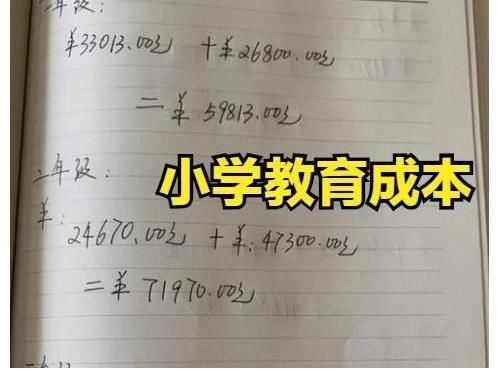 年级:
¥33013.00元 +¥26800.00元
=¥59813.00元
小学教育成本
二年级:
¥:
24670.00元 +¥:47300.00元
=¥71970.00元